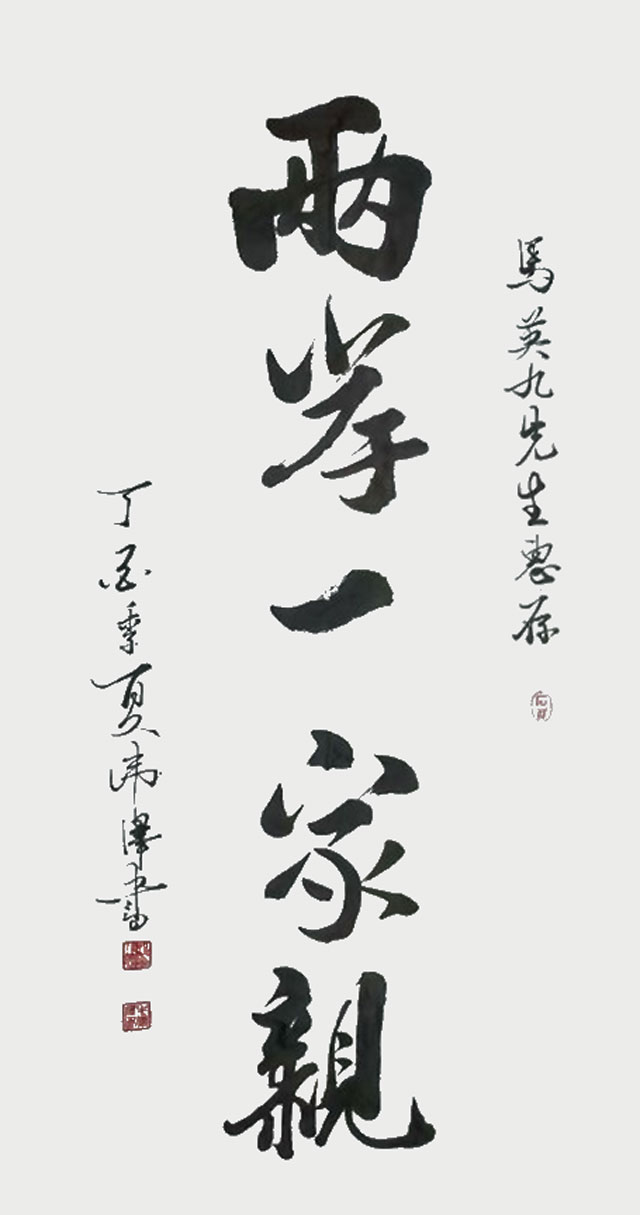 馬英九先生惠存
兩岸一家親
丁酉季夏沛澤書